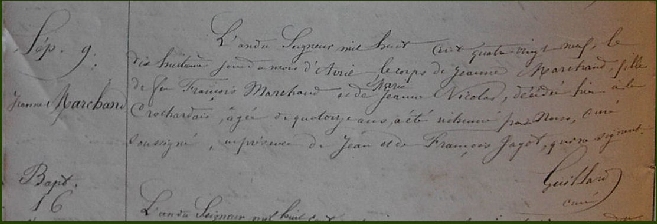 Sép. 9.
Jeanne Marchand
L'an du Seigneur mil huit cent quatre vingt neuf, le
dix huitième jour du mois d'Avril le corps de Jeanne Marchand, fille
de feu François Marchand et de Marie Jeanne Nicolas, décédée hier à la
Crochardais, âgée de quatorze ans, a été inhumé par Nous, curé
soussigné, en présence de Jean et de François Jagot, qui ne signent.
Guillard
curé
Bapt.
16
L'an du Seigneur mil huit cent